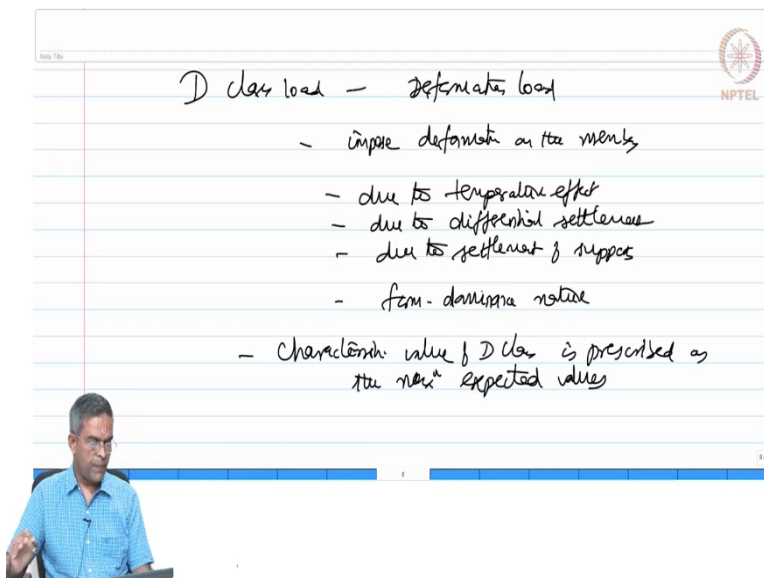 Note Title
NPTEL
D class load - Deformation load
- impose deformation on the members
- due to temperature effect
- due to differential settlement
- due to settlement of supports
- form-dominance nature
- Characteristic value of D class is prescribed as
the maxm expected values
8